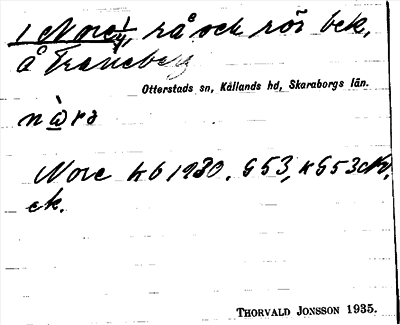 1 Nore 1/4, rå och rör bek,
å Traneberg
Otterstads sn, Kållands hd, Skaraborgs län.
nàra
Nore hb 1930. G53, KG53
ek.
THORVALD JONSSON 1935.